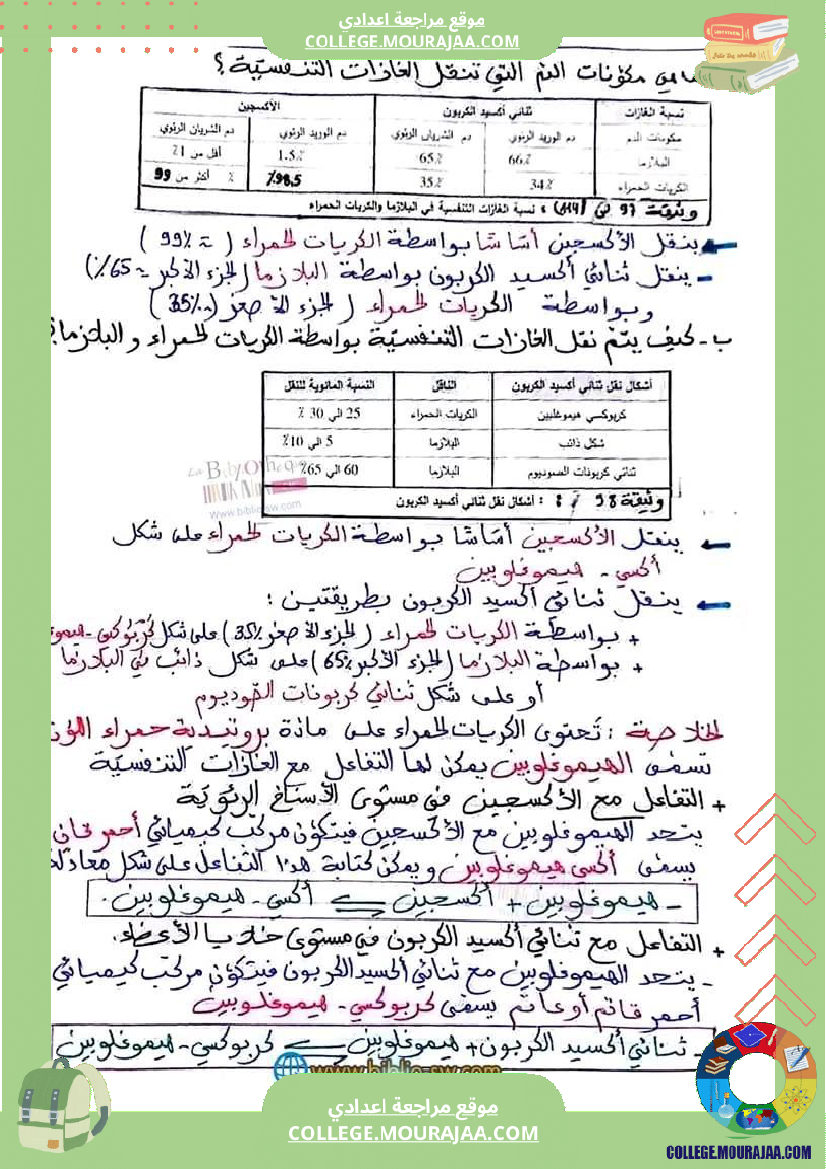 موقع مراجعة اعدادي
COLLEGE.MOURAJAA.COM
ما هي مكوّنات الدم التي تنقل الغازات التنفسيّة؟
نسبة الغازات ثنائي أكسيد الكربون الأكسجين
مكونات الدم دم الوريد الرئوي دم الشريان الرئوي دم الوريد الرئوي دم الشريان الرئوي
البلازما 66% 65% 1.5% أقل من 1%
الكريات الحمراء 34% 35% 98.5% أكثر من 99 %
وثيقة 97 : نسبة الغازات التنفسية في البلازما والكريات الحمراء
ينقل الأكسجين أساسًا بواسطة الكريات الحمراء (≈ 99%)
- ينقل ثنائي أكسيد الكربون بواسطة البلازما (الجزء الأكبر ≈ 65%)
وبواسطة الكريات الحمراء (الجزء الأصغر ≈ 35%)
ب - كيف يتمّ نقل الغازات التنفسيّة بواسطة الكريات الحمراء والبلازما؟
أشكال نقل ثنائي أكسيد الكربون الناقل النسبة المائوية للنقل
كربوكسي هيموغلبين الكريات الحمراء 25 الى 30 %
شكل ذائب البلازما 5 الى 10%
ثنائي كربونات الصوديوم البلازما 60 الى 65%
وثيقة 98 : أشكال نقل ثنائي أكسيد الكربون
La Bibliothèque
www.bibliosw.com
ينقل الأكسجين أساسًا بواسطة الكريات الحمراء على شكل
أكسي - هيموغلوبين
ينقل ثنائي أكسيد الكربون بطريقتين :
+ بواسطة الكريات الحمراء (الجزء الأصغر 35%) على شكل كربوكسي - هيمو
+ بواسطة البلازما (الجزء الأكبر 65%) على شكل ذائب في البلازما
أو على شكل ثنائي كربونات الصوديوم
الخلاصة : تحتوي الكريات الحمراء على مادة بروتيدية حمراء اللون
تسمّى الهيموغلوبين يمكن لها التفاعل مع الغازات التنفسيّة
+ التفاعل مع الأكسجين في مستوى الأسناخ الرئويّة
يتحد الهيموغلوبين مع الأكسجين فيتكوّن مركّب كيميائي أحمر قان
يسمّى أكسي هيموغلوبين ويمكن كتابة هذا التفاعل على شكل معادلة
- هيموغلوبين + أكسجين ⇌ أكسي - هيموغلوبين .
+ التفاعل مع ثنائي أكسيد الكربون في مستوى خلايا الأعضاء.
- يتحد الهيموغلوبين مع ثنائي أكسيد الكربون فيتكوّن مركّب كيميائي
أحمر قاتم أو عاتم يسمّى كربوكسي - هيموغلوبين
- ثنائي أكسيد الكربون + هيموغلوبين ⇌ كربوكسي - هيموغلوبين
www.biblio-sw.com
موقع مراجعة اعدادي
COLLEGE.MOURAJAA.COM
COLLEGE.MOURAJAA.COM